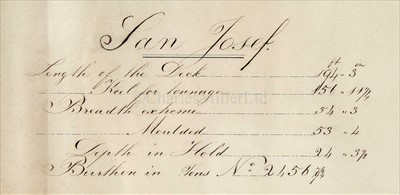 San Josef.
ft in
Length of the Deck 194 " 3
Keel for tonnage 156 " 11½
Breadth extreme 54 " 3
Moulded 53 " 4
Depth in Hold 24 " 3½
Burthen in Tons No 2456